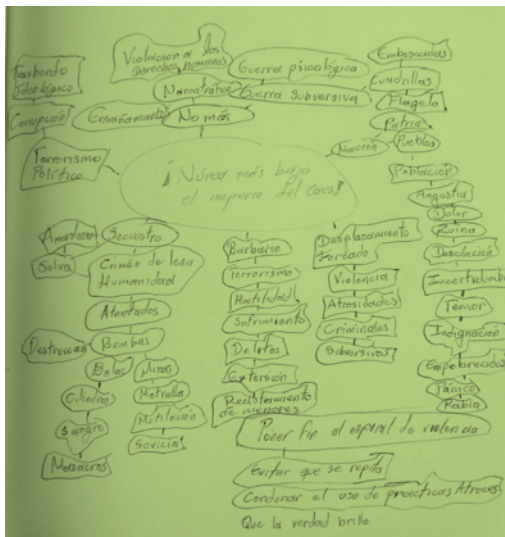 Trasbordo
Ideológico
Corrupción
Terrorismo
Político
Violacion a los
Derechos Humanos
Narcotráfico
Ensañamiento
No más
Guerra psicológica
Guerra Subversiva
Emboscadas
Cuadrillas
Flagelo
Patria
Nación
Pueblos
Población
Angustia
Dolor
Desolación
Incertidumbre
Temor
Indignacion
Empobrecidos
Pánico
Rabia
¡Nunca más bajo
el imperio del Caos!
Amenazan
Secuestro
Selva
Crimén de lesa
Humanidad
Atentados
Destruccion
Bombas
Balas
Cilindros
Sangre
Masacres
Minas
Metralla
Mutilación
Sevicia
Barbarie
Terrorismo
Hostilidad
Sufrimiento
Delitos
Extorsión
Reclutamiento
de menores
Desplazamiento
Forzado
Violencia
Atrosidades
Criminales
Subversivos
Poner fin al espiral de violencia
Evitar que se repita
Condenar el uso de practicas Atroces
Que la verdad brille